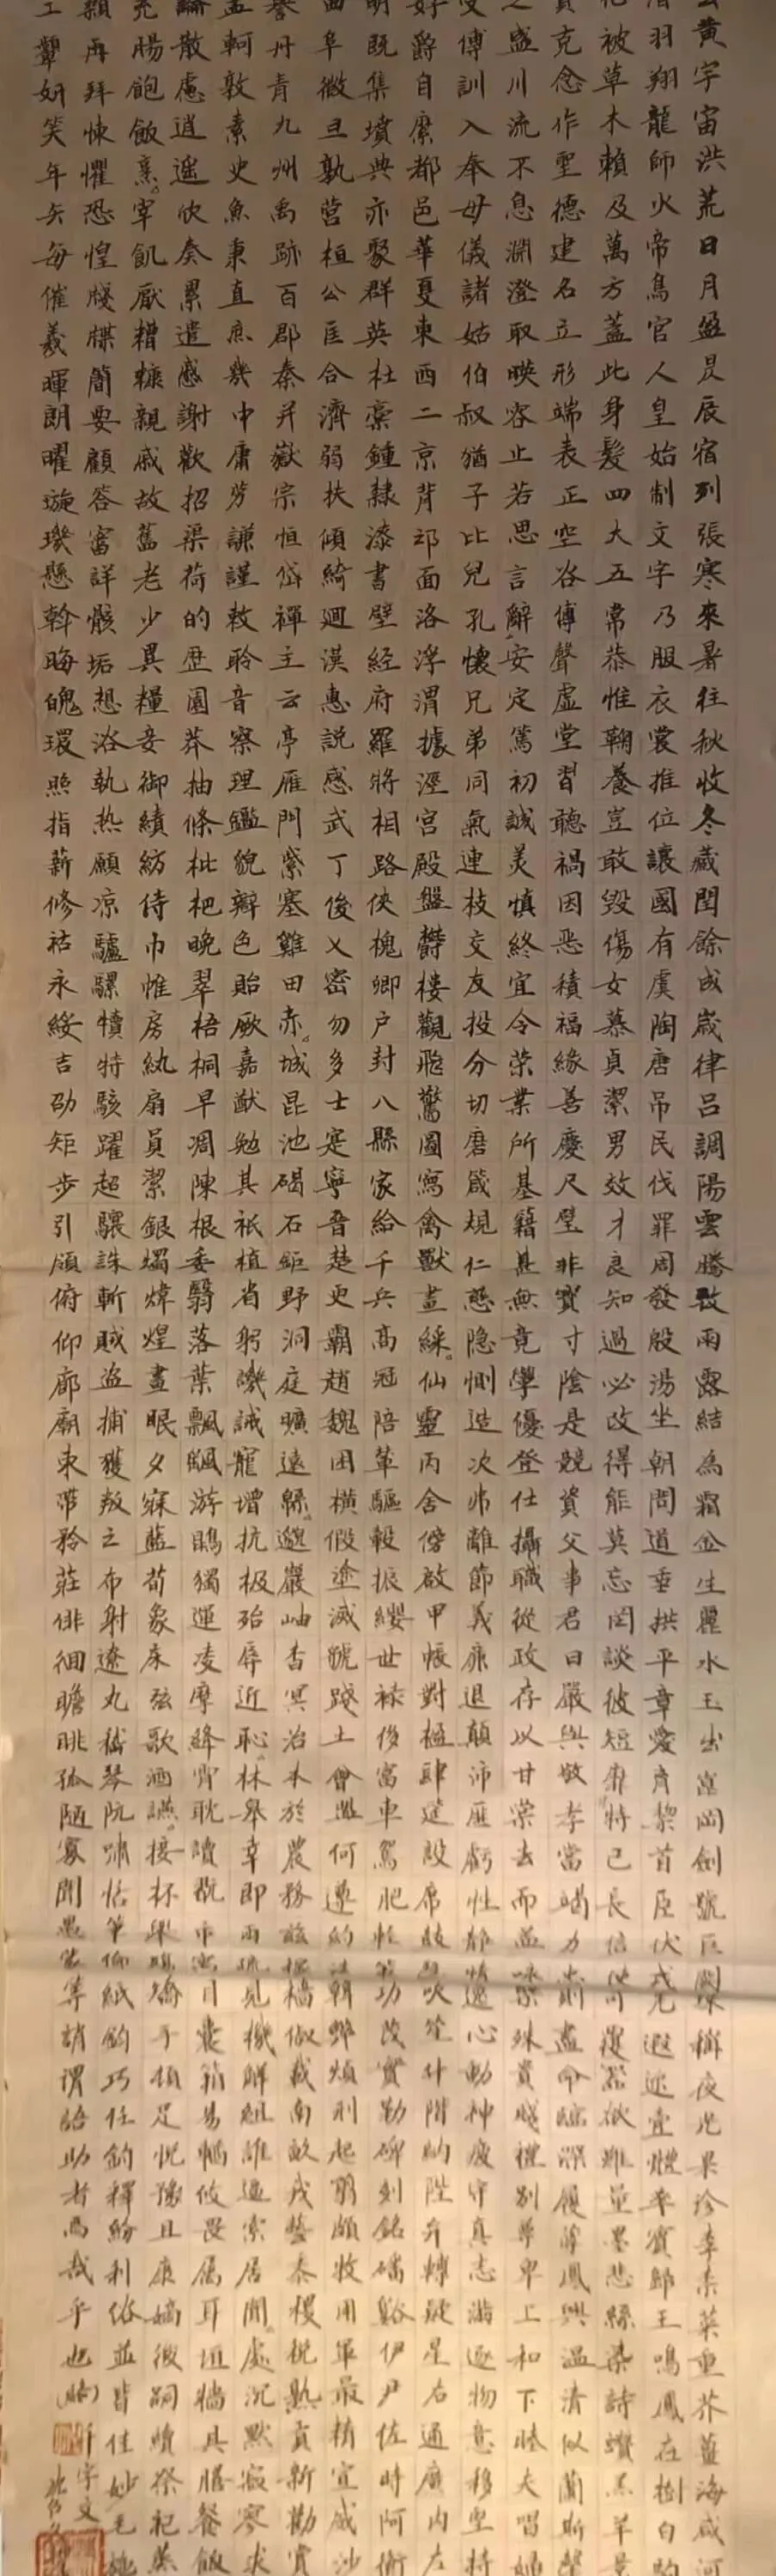 黃宇宙洪荒日月盈昃辰宿列張寒來暑往秋收冬藏閏餘成歲律呂調陽雲騰致雨露結為霜金生麗水玉出崑岡劍號巨闕珠稱夜光果珍李柰菜重芥薑海咸河
羽翔龍師火帝鳥官人皇始制文字乃服衣裳推位讓國有虞陶唐吊民伐罪周發殷湯坐朝問道垂拱平章愛育黎首臣伏戎羌遐邇壹體率賓歸王鳴鳳在樹白駒
化被草木賴及萬方蓋此身髮四大五常恭惟鞠養豈敢毀傷女慕貞潔男效才良知過必改得能莫忘罔談彼短靡恃己長信使可覆器欲難量墨悲絲染詩讚羔羊景
克念作聖德建名立形端表正空谷傳聲虛堂習聽禍因惡積福緣善慶尺璧非寶寸陰是競資父事君曰嚴與敬孝當竭力忠則盡命臨深履薄夙興溫清似蘭斯馨
之盛川流不息淵澄取映容止若思言辭安定篤初誠美慎終宜令榮業所基籍甚無竟學優登仕攝職從政存以甘棠去而益詠樂殊貴賤禮別尊卑上和下睦夫唱婦
受傅訓入奉母儀諸姑伯叔猶子比兒孔懷兄弟同氣連枝交友投分切磨箴規仁慈隐惻造次弗離節義廉退顛沛匪虧性靜情逸心動神疲守真志滿逐物意移堅持
好爵自縻都邑華夏東西二京背邙面洛浮渭據涇宮殿盤鬱樓觀飛驚圖寫禽獸畫綵仙靈丙舍傍啟甲帳對楹肆筵設席鼓瑟吹笙升階納陛弁轉疑星右通廣內左
明既集墳典亦聚群英杜稾鍾隸漆書壁經府羅將相路俠槐卿户封八縣家給千兵高冠陪輦驅轂振纓世祿侈富車駕肥輕策功茂實勒碑刻銘磻谿伊尹佐時阿衡
曲阜微旦孰營桓公匡合濟弱扶傾綺迴漢惠説感武丁俊乂密勿多士寔寧晉楚更霸趙魏困橫假途滅虢踐土會盟何遵約法韓弊煩刑起翦頗牧用軍最精宣威沙
譽丹青九州禹跡百郡秦并嶽宗恒岱禪主云亭雁門紫塞雞田赤城昆池碣石鉅野洞庭曠遠綿邈巖岫杳冥治本於農務兹稼穡俶載南畝我藝黍稷稅熟貢新勸賞
孟軻敦素史魚秉直庶幾中庸勞謙謹敕聆音察理鑑貌辨色貽厥嘉猷勉其祇植省躬譏誡寵增抗極殆辱近恥林皋幸即兩疏見機解組誰逼索居閒處沉默寂寥求
論散慮逍遙欣奏累遣慼謝歡招渠荷的歷園莽抽條枇杷晚翠梧桐早凋陳根委翳落葉飄颻游鵾獨運凌摩絳霄耽讀翫市寓目囊箱易輶攸畏屬耳垣牆具膳餐飯
充腸飽飫烹宰飢厭糟糠親戚故舊老少異糧妾御績紡侍巾帷房紈扇員潔銀燭煒煌晝眠夕寐藍筍象床弦歌酒讌接杯舉觴矯手頓足悅豫且康嫡後嗣續祭祀蒸
顙再拜悚懼恐惶牋牒簡要顧答審詳骸垢想浴執熱願凉驢騾犢特駭躍超驤誅斬賊盜捕獲叛亡布射遼丸嵇琴阮嘯恬筆倫紙鈞巧任釣釋紛利俗並皆佳妙毛施
工顰妍笑年矢每催羲暉朗曜璇璣懸斡晦魄環照指薪修祜永綏吉劭矩步引領俯仰廊廟束帶矜莊徘徊瞻眺孤陋寡聞愚蒙等誚謂語助者焉哉乎也(臨)
千字文